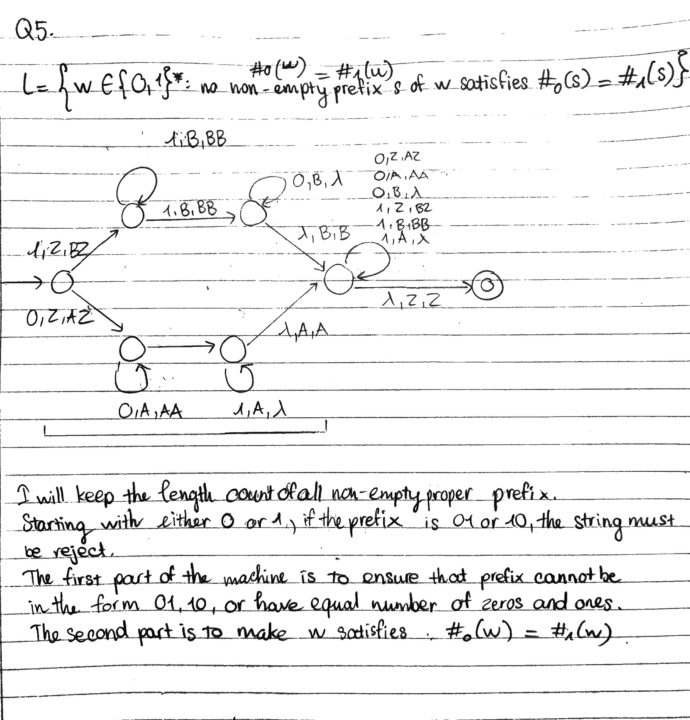 Q5.
#0(w) = #1(w)
L = { w ∈ {0,1}*: no non-empty prefix s of w satisfies #0(s) = #1(s)}
1,B,BB
0,Z,AZ
0,A,AA
0,B,λ
1,Z,BZ
1,B,BB
1,A,λ
0,B,λ
1,B,BB
λ,B,B
1,Z,BZ
λ,Z,Z
0,Z,AZ
λ,A,A
0,A,AA 1,A,λ
I will keep the length count of all non-empty proper prefix.
Starting with either 0 or 1, if the prefix is 01 or 10, the string must
be reject.
The first part of the machine is to ensure that prefix cannot be
in the form 01, 10, or have equal number of zeros and ones.
The second part is to make w satisfies : #0(w) = #1(w)